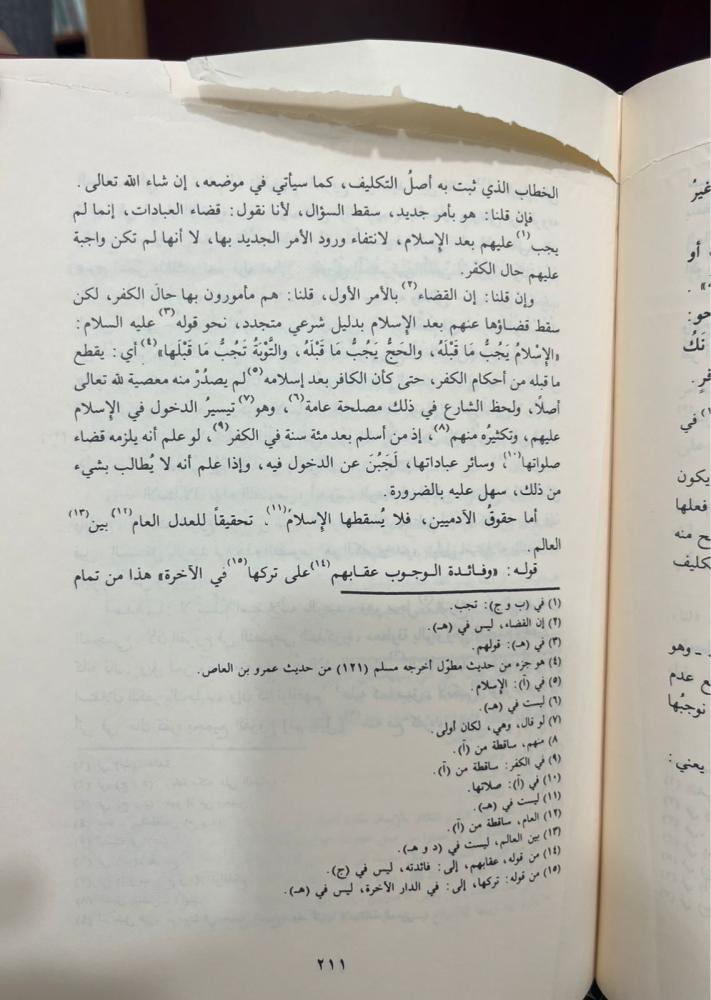 الخطاب الذي ثبت به أصلُ التكليف، كما سيأتي في موضعه، إن شاء الله تعالى.
فإن قلنا: هو بأمر جديد، سقط السؤال، لأنا نقول: قضاء العبادات، إنما لم
يجب(١) عليهم بعد الإسلام، لانتفاء ورود الأمر الجديد بها، لا أنها لم تكن واجبة
عليهم حال الكفر.
وإن قلنا: إن القضاء(٢) بالأمر الأول، قلنا: هم مأمورون بها حالَ الكفر، لكن
سقط قضاؤها عنهم بعد الإسلام بدليل شرعي متجدد، نحو قوله(٣) عليه السلام:
«الإِسْلامُ يَجُبُّ مَا قَبْلَهُ، والحَجُّ يَجُبُّ مَا قَبْلَهُ، والتَّوْبَةُ تَجُبُّ مَا قَبْلَها»(٤) أي: يقطع
ما قبله من أحكام الكفر، حتى كأن الكافر بعد إسلامه(٥) لم يصدُرْ منه معصية لله تعالى
أصلًا، ولحظ الشارع في ذلك مصلحة عامة(٦)، وهو(٧) تيسيرُ الدخول في الإسلام
عليهم، وتكثيرُه منهم(٨)، إذ من أسلم بعد مئة سنة في الكفر(٩)، لو علم أنه يلزمه قضاء
صلواتها(١٠)، وسائر عباداتها، لَجَبُنَ عن الدخول فيه، وإذا علم أنه لا يُطالب بشيء
من ذلك، سهل عليه بالضرورة.
أما حقوقُ الآدميين، فلا يُسقطها الإِسلامُ(١١)، تحقيقاً للعدل العام(١٢) بين(١٣)
العالم.
قوله: «وفائدة الوجوب عقابهم(١٤) على تركها(١٥) في الآخرة» هذا من تمام
(١) في (ب و ج): تجب.
(٢) إن القضاء، ليس في (هـ).
(٣) في (هـ): قولهم.
(٤) هو جزء من حديث مطوّل أخرجه مسلم (١٢١) من حديث عمرو بن العاص.
(٥) في (آ): الإسلام.
(٦) ليست في (هـ).
(٧) لو قال، وهي، لكان أولى.
(٨) منهم، ساقطة من (آ).
(٩) في الكفر: ساقطة من (آ).
(١٠) في (آ): صلاتها.
(١١) ليست في (هـ).
(١٢) العام، ساقطة من (آ).
(١٣) بين العالم، ليست في (د و هـ).
(١٤) من قوله، عقابهم، إلى: فائدته، ليس في (ج).
(١٥) من قوله: تركها، إلى: في الدار الآخرة، ليس في (هـ).
٢١١
غيرُ
، أو
حو:
تَكُ
في
يكون
فعلها
ح منه
كليف
ـ وهو
ع عدم
نوجبُها
يعني: